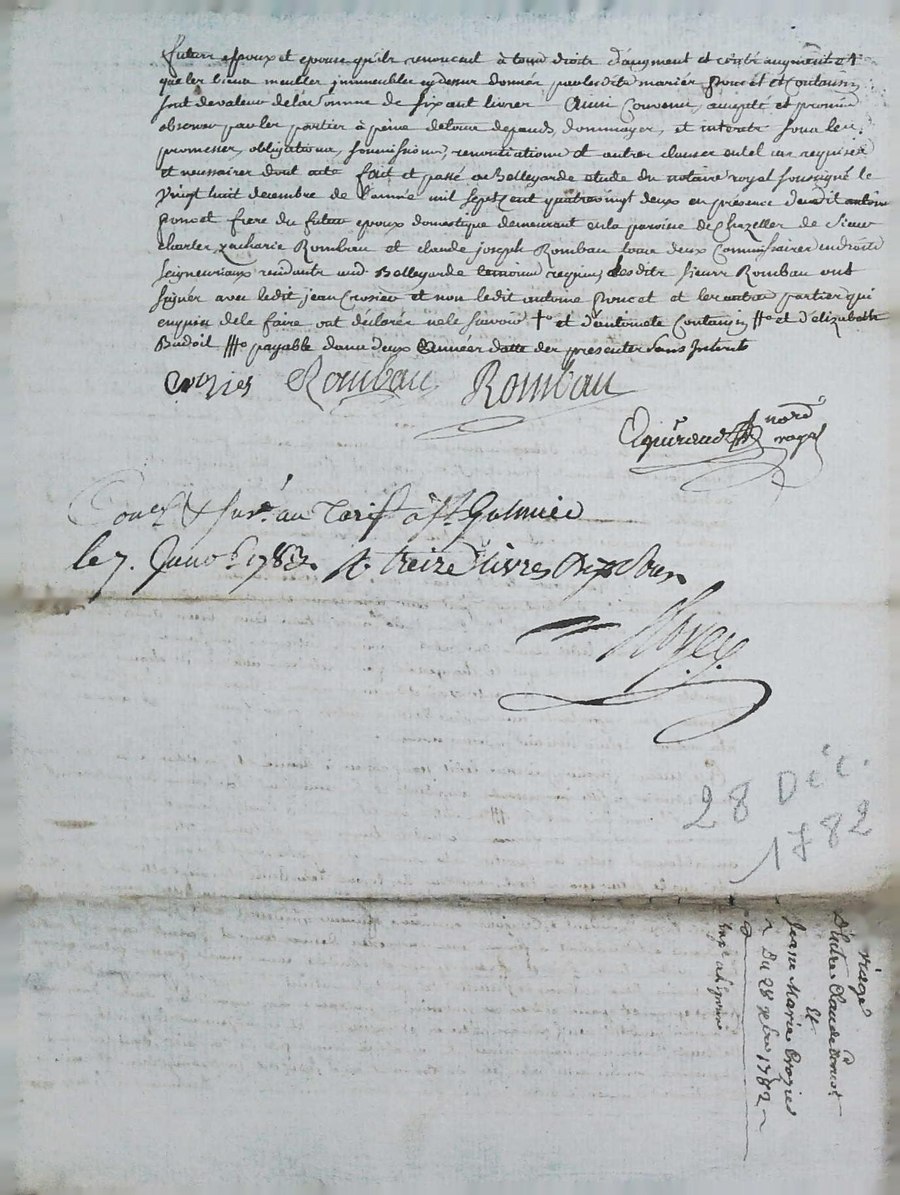 futurs epoux et epouse qu'ils renoncent à tous droits d'augment et contre augment et
que les biens meubles immeubles cy dessus donnés par lesdits mariés Poncet et Contamin
sont de valeur de la somme de six cent livres Ainsi Convenu, accepté et promis
observer par les parties à peine de tous depends, dommages, et interets sous les
promesses, obligations, soumissions, renonciations et autres clauses en tel cas requises
et necessaires dont acte fait et passé au Bellegarde etude du notaire royal soussigné le
Vingt huit decembre de l'année mil sept cent quatre vingt deux en presence dudit antoine
Poncet frere du futur epoux domestique demeurant en la paroisse de Chazelles de Sieur
Charles Zacharie Rombau et claude joseph Rombau tous deux Commissaires en droits
seigneuriaux residants aud Bellegarde temoins requis, lesdits sieurs Rombau ont
signés avec ledit jean Crosier et non ledit antoine Poncet et les autres parties qui
enquis de le faire ont déclarés ne le sçavoir † et d'antoinete Contamin # et d'elizabeth
# payable dans deux années datte des presentes sans interets
crozier Rombau Rombau
Eguiraud nore
royal
Con.lé & Insé au Tarif à St Galmier
le 7. Janv. 1783. R. treize livres dix sous
Noyer
28 Déc.
1782
riage
D'entre Claude Poncet
Et
Jeane Marie Crozier
Du 28 xbre 1782